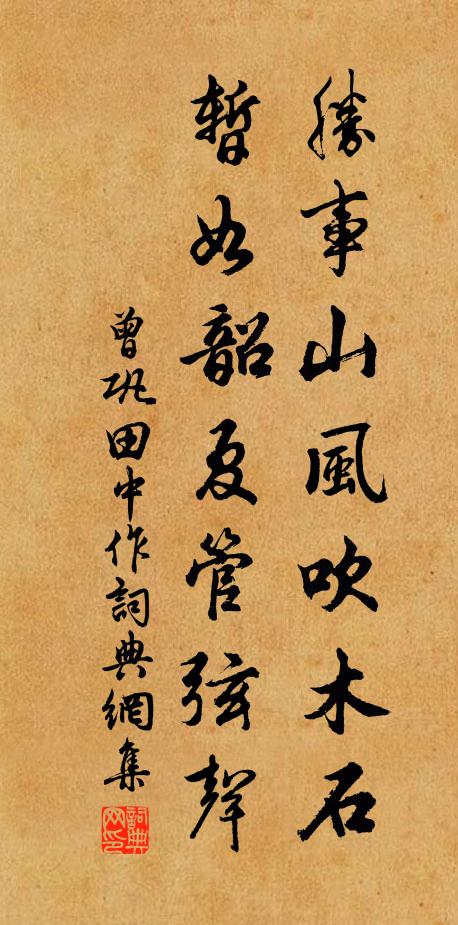 勝事山風吹木石
暫如韶夏管弦聲
曾鞏田中作詞典網集
詞典网印